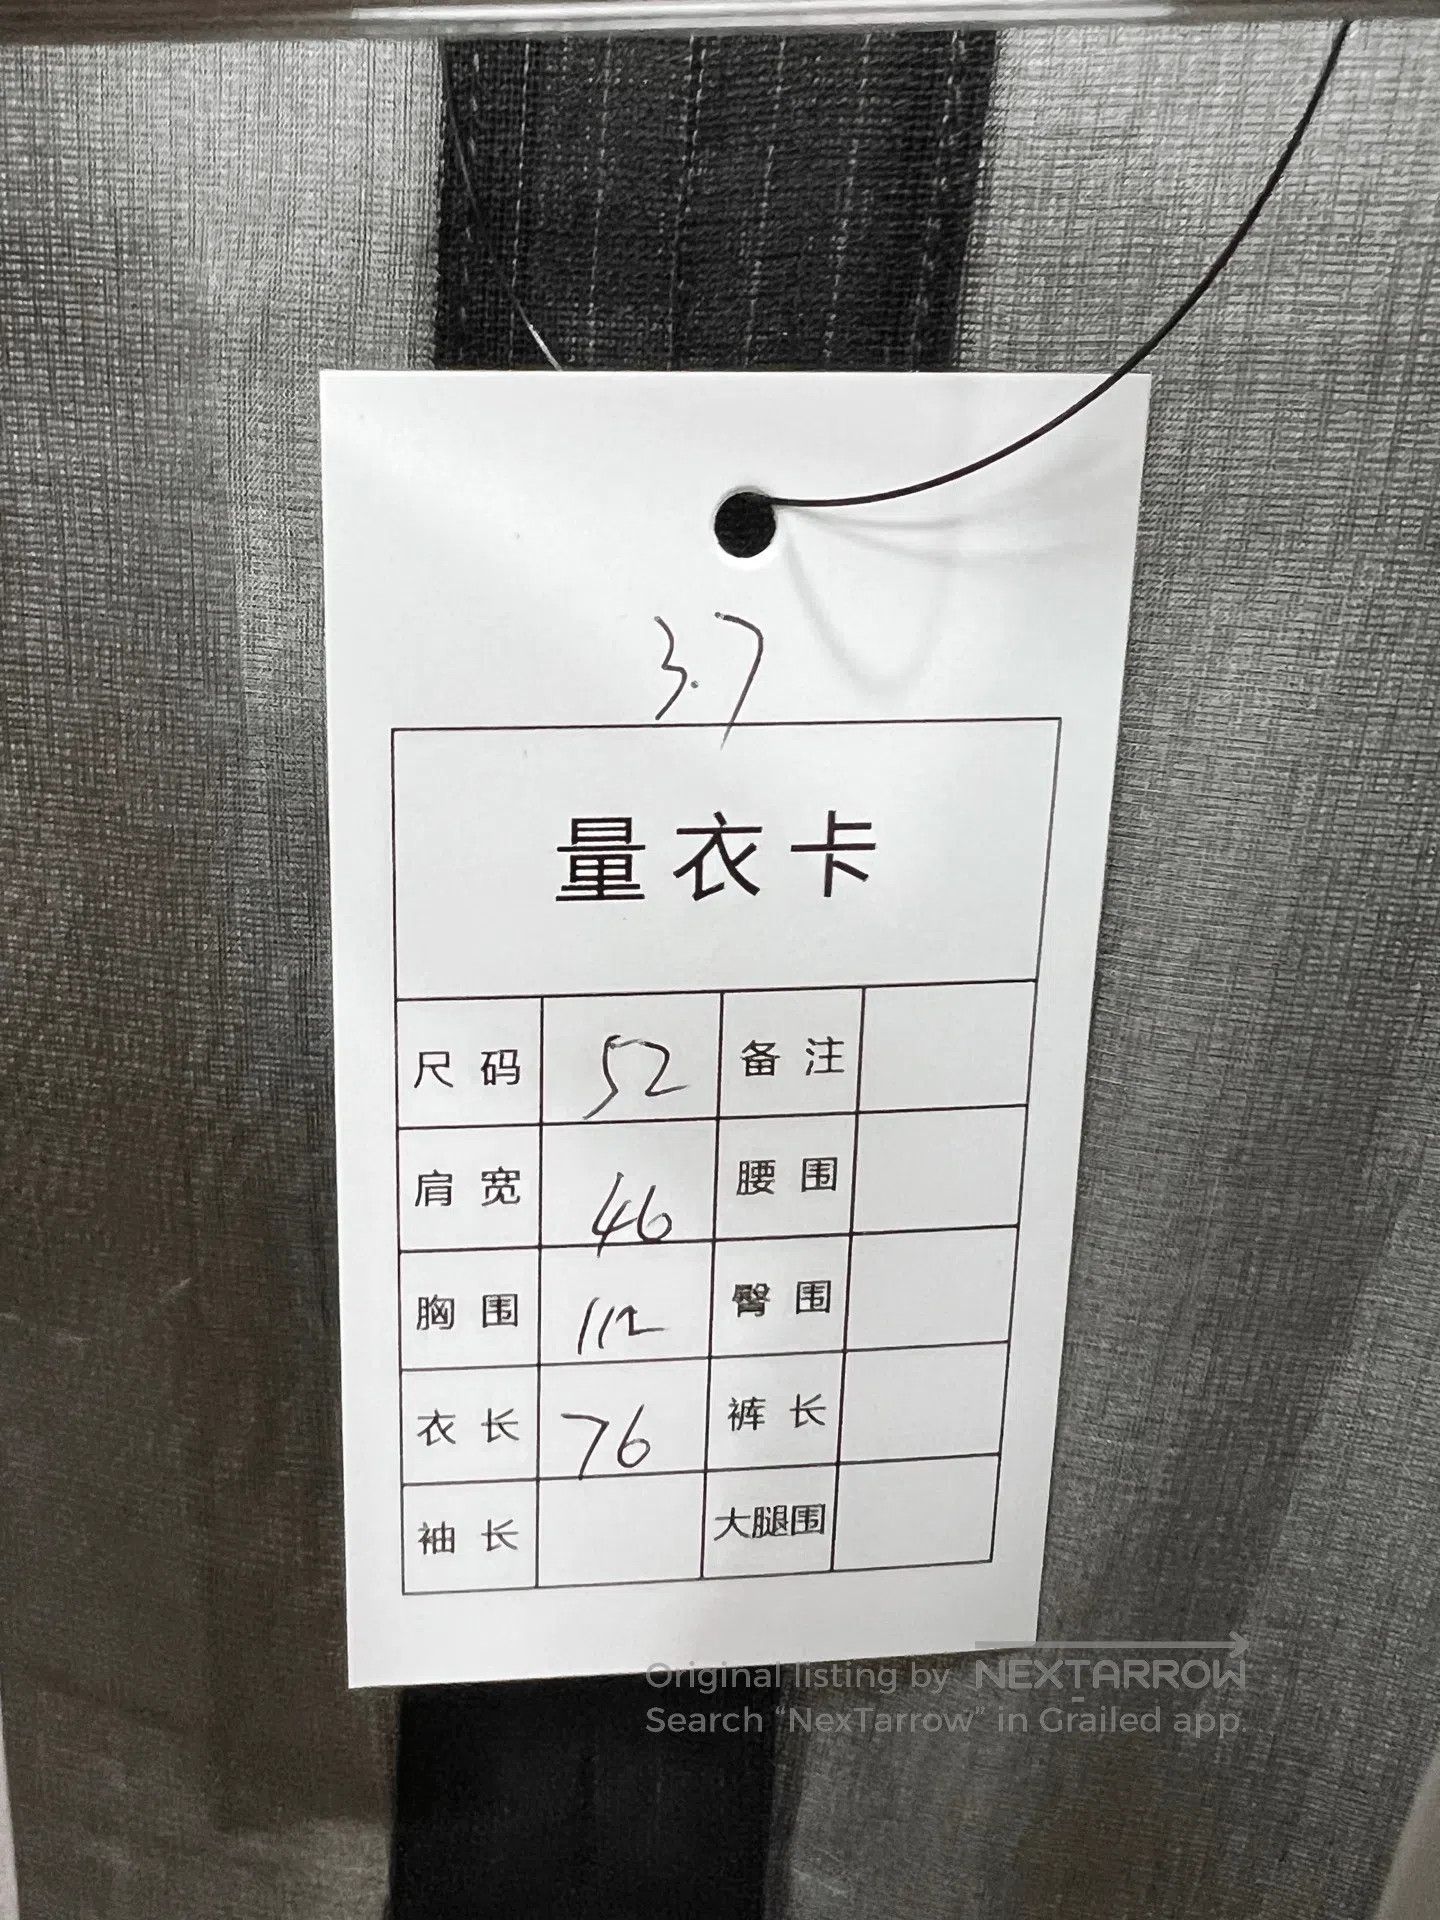 3.7
量衣卡
尺码 52 备注
肩宽 46 腰围
胸围 112 臀围
衣长 76 裤长
袖长 大腿围
Original listing by NEXTARROW
Search “NexTarrow” in Grailed app.